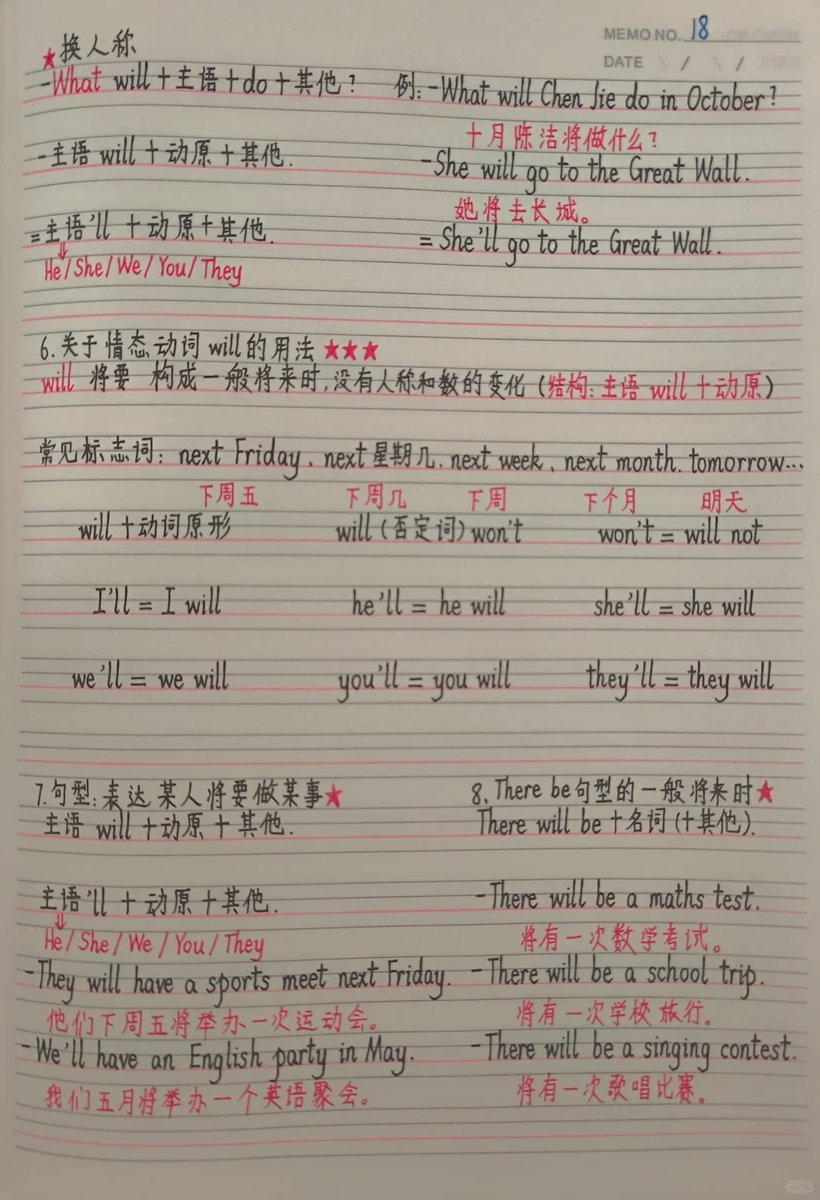 MEMO NO. 18
DATE / / /
★换人称
-What will+主语+do+其他? 例:-What will Chen Jie do in October?
十月陈洁将做什么?
-主语 will+动原+其他. -She will go to the Great Wall.
她将去长城。
=主语'll +动原+其他. = She'll go to the Great Wall.
↓
He/She/We/You/They
6.关于情态动词will的用法★★★
will 将要 构成一般将来时,没有人称和数的变化(结构:主语 will+动原)
常见标志词: next Friday、next星期几、next week、next month、tomorrow...
下周五 下周几 下周 下个月 明天
will+动词原形 will(否定词)won't won't = will not
I'll = I will he'll = he will she'll = she will
we'll = we will you'll = you will they'll = they will
7.句型:表达某人将要做某事★ 8.There be句型的一般将来时★
主语 will+动原+其他. There will be+名词(+其他).
主语'll +动原+其他. -There will be a maths test.
↓
He/She/We/You/They 将有一次数学考试。
-They will have a sports meet next Friday. -There will be a school trip.
他们下周五将举办一次运动会。 将有一次学校旅行。
-We'll have an English party in May. -There will be a singing contest.
我们五月将举办一个英语聚会。 将有一次歌唱比赛。